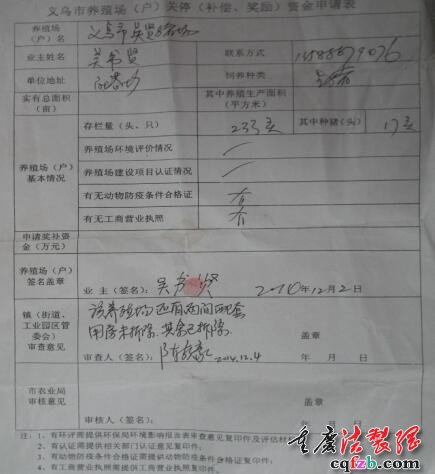 义乌市养殖场(户)关停(补偿、奖励)资金申请表
养殖场(户)名 义乌市吴贤猪场
业主姓名 吴书贤 联系方式
单位地址 饲养种类
实有总面积(亩) 其中养殖生产面积(平方米)
养殖场(户)基本情况
存栏量(头、只) 233头 其中种猪(头) 17头
养殖场环评情况 /
养殖场建设项目认证情况 /
有无动物防疫条件合格证 有
有无工商营业执照 有
申请奖补资金(万元)
养殖场(户)签名盖章
业 主(签名): 吴书贤 2010年12月2日
镇(街道、工业园区管委会)审查意见
该养殖场还有两间配套
用房未拆除,其余已拆除。
盖章
审查人(签名): 2014.12.4 年 月 日
市农业局审核意见
盖章
审核人(签名): 年 月 日
注:1、有环评需提供环保局环境影响报告表审查意见复印件及评估材
2、有认证需提供相关部门认证意见复印件;
3、有动物防疫条件合格证需提供动物防疫条件合格证复印件;
4、有工商营业执照需提供工商营业执照复印件。
重庆法制网
cqfzb.com